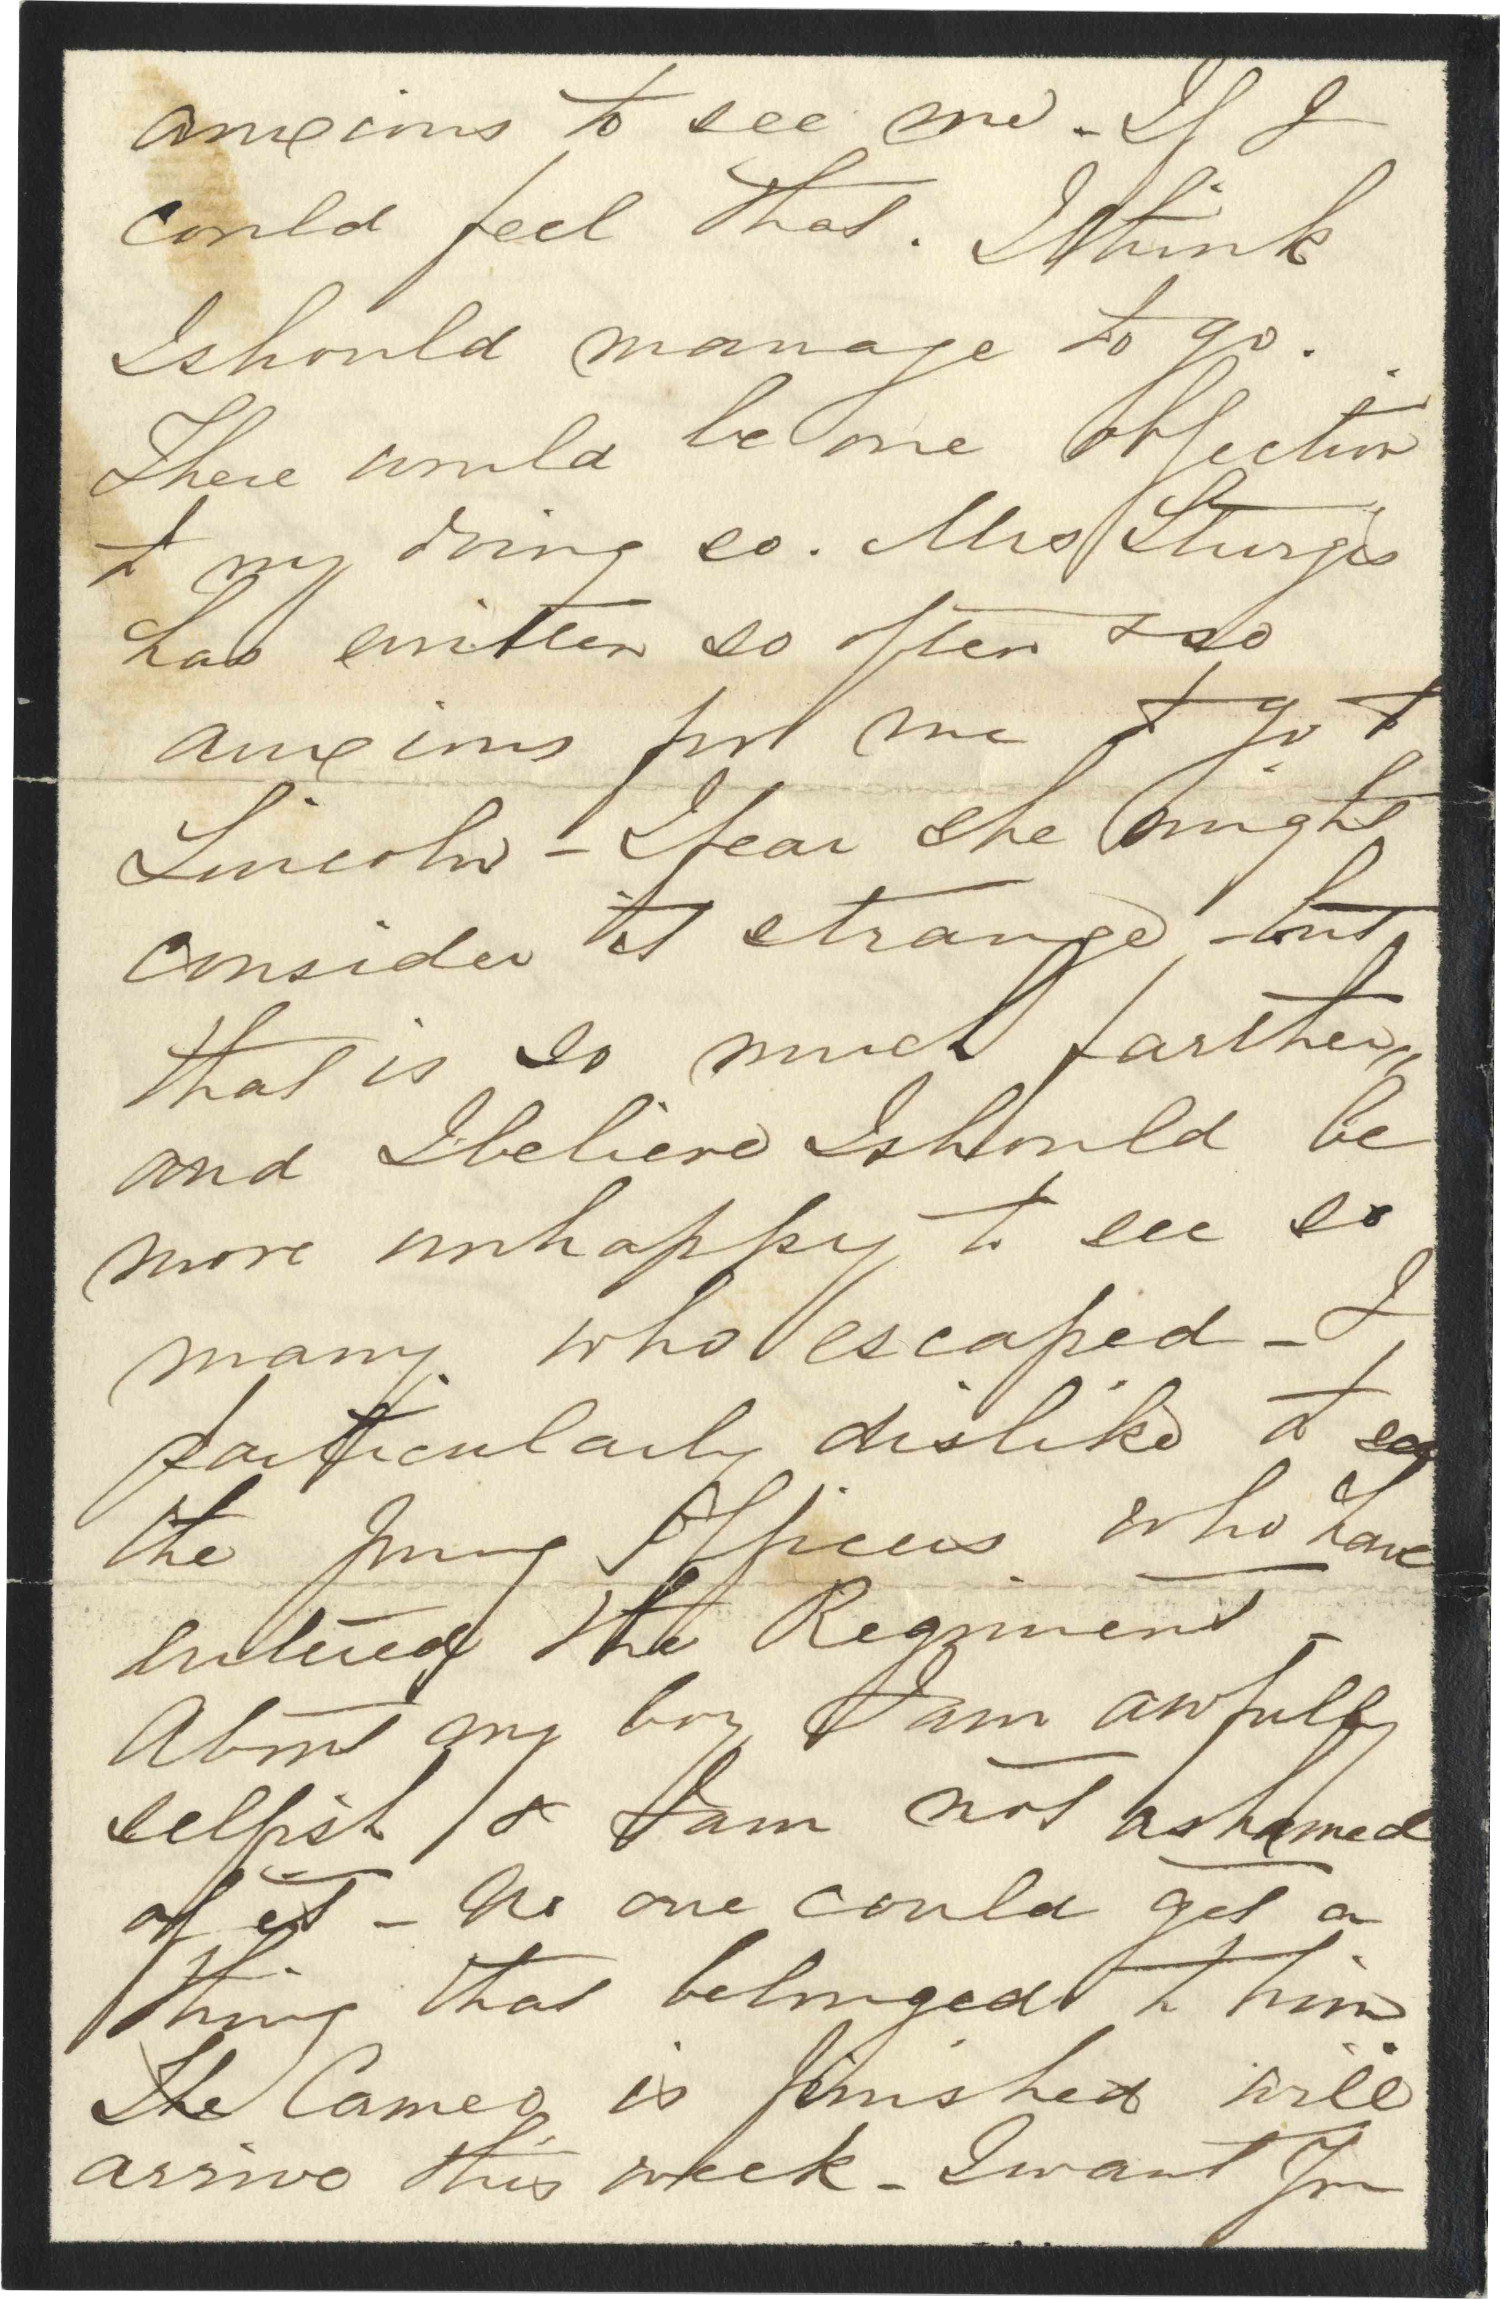 anxious to see me - If I
could feel that. I think
I should manage to go.
There would be one objection
to my doing so. Mrs Sturgis
has written so often & so
anxious for me to go to
Lincoln - I fear she might
consider it strange - but
that is so much farther,
and I believe I should be
more unhappy to see so
many who escaped - I
particularly dislike to see
the young Officers who have
entered the Regiment -
About my boy I am awfully
selfish & I am not ashamed
of it - No one could get a
thing that belonged to him
The Cameo is finished will
arrive this week - I want you